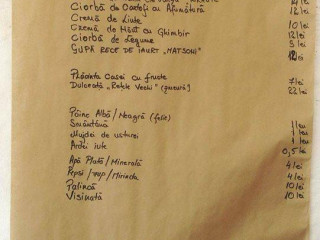 Ciorbă de Cartofi cu Afumătură 12 lei
Cremă de Linte 10 lei
Cremă de Hăst cu Ghimbir 12 lei
Ciorbă de Legume 5 lei
SUPĂ RECE DE IAURT „MATSONI" 12 lei
Plăcinta Casei cu fructe 7 lei
Dulceată „Rețete Vechi" 22 lei
Pâine Albă/Neagră (felie) 1 leu
Smântână 1 leu
Mujdei de usturoi 1 leu
Ardei iute 0,5 lei
Apă Plată/Minerală 4 lei
Pepsi/7up/Mirinda 4 lei
Palincă 10 lei
Vișinată 10 lei